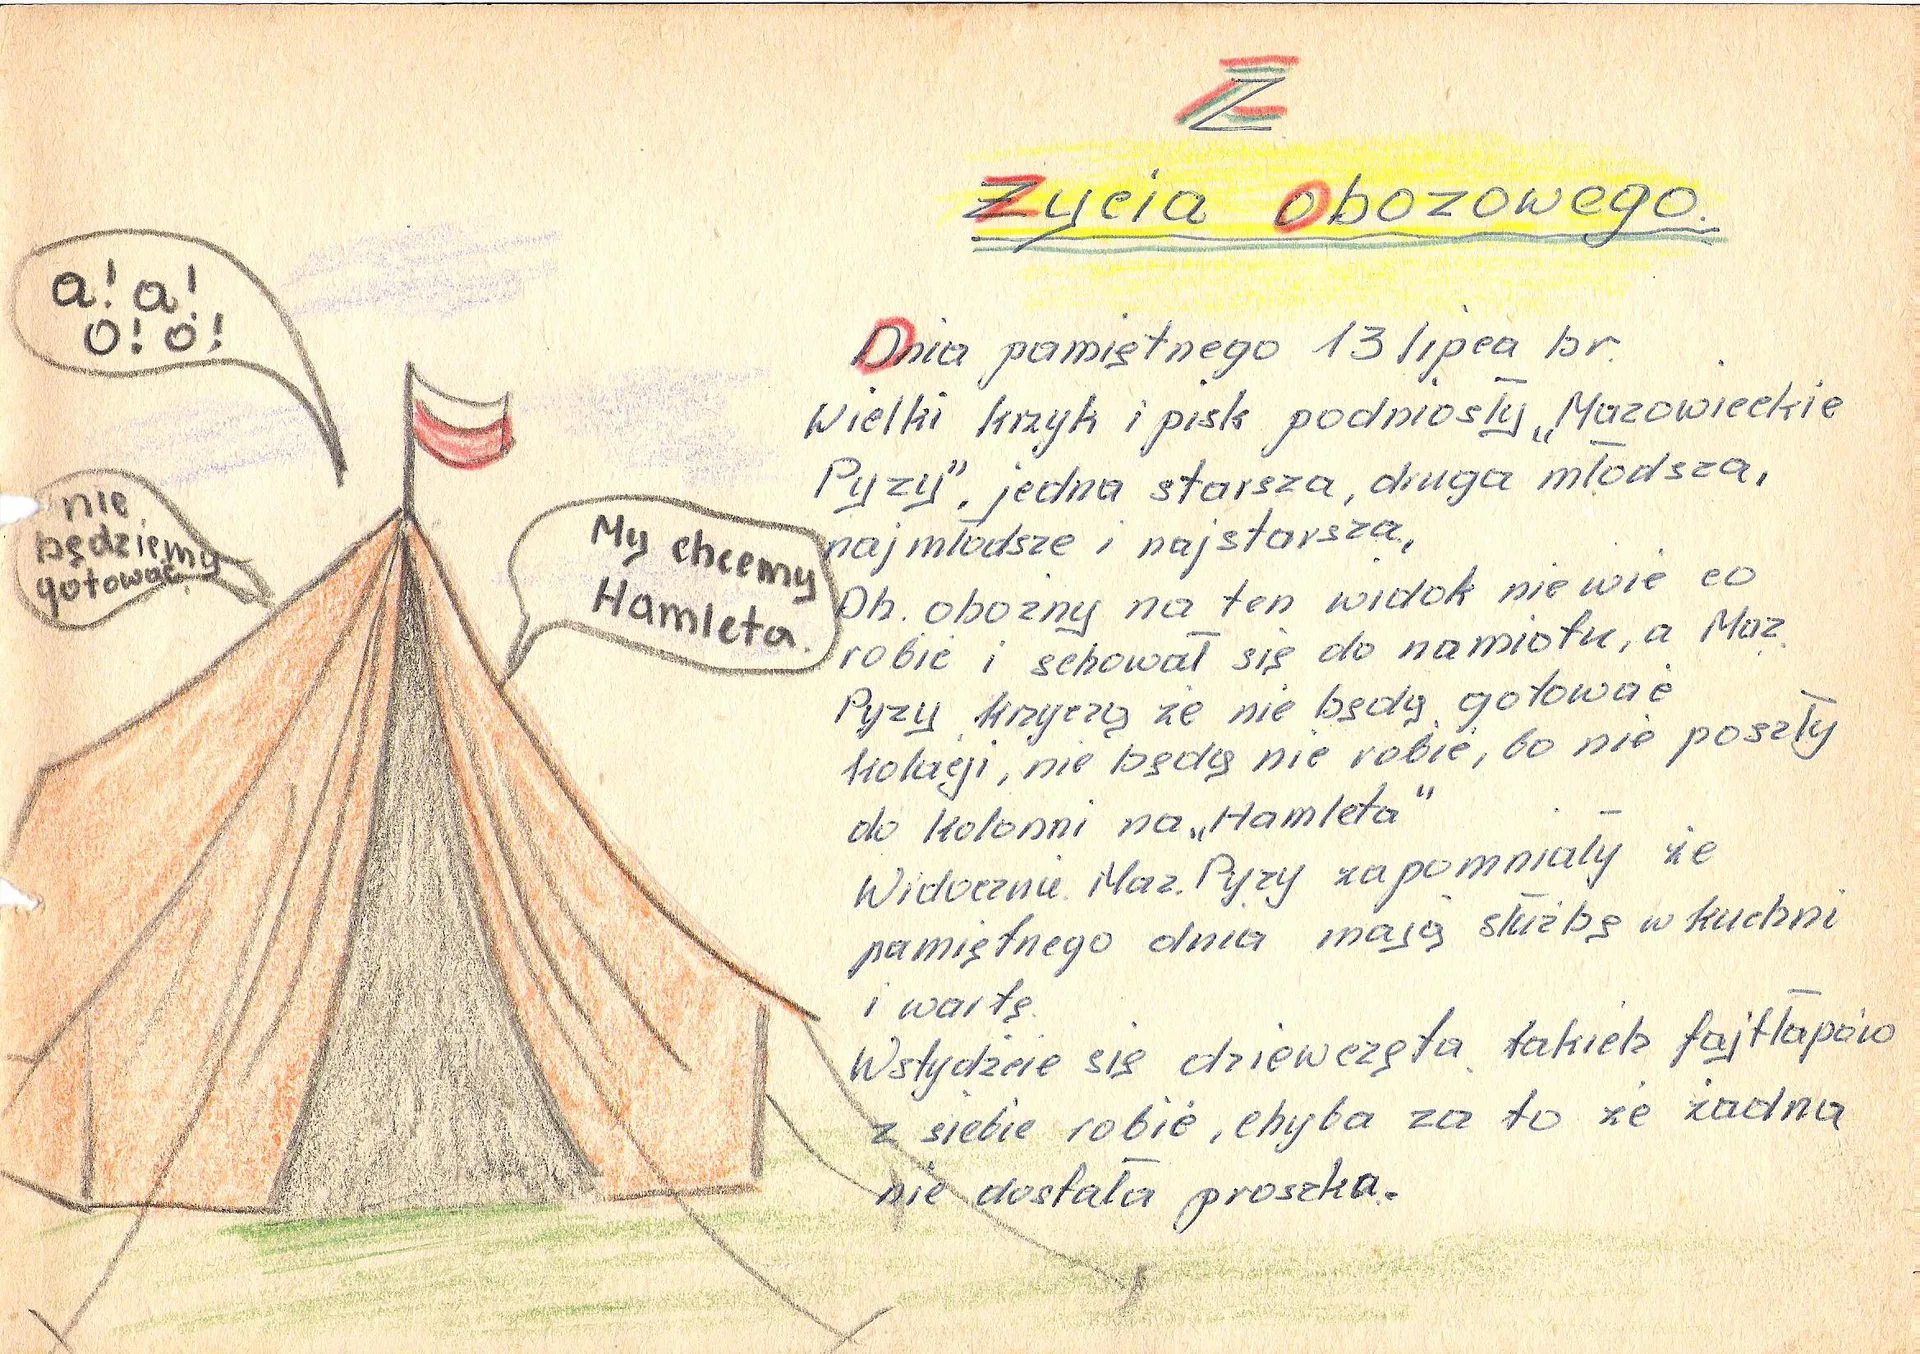 Z
Życia obozowego.
a! a!
o! o!
nie
będziemy
gotować.
My chcemy
Hamleta.
Dnia pamiętnego 13 lipca br.
Wielki krzyk i pisk podniosły „Mazowieckie
Pyzy", jedna starsza, druga młodsza,
najmłodsze i najstarsza,
Dh. obozny na ten widok nie wie co
robić i schował się do namiotu, a Maz.
Pyzy krzyczą że nie będą gotować
kolacji, nie będą nic robić, bo nie poszły
do kolonni na „Hamleta"
Widocznie Maz. Pyzy zapomniały że
pamiętnego dnia mają służbę w kuchni
i wartę.
Wstydźcie się dziewczęta takich fajtłapów
z siebie robić, chyba za to że żadna
nie dostała proszka.